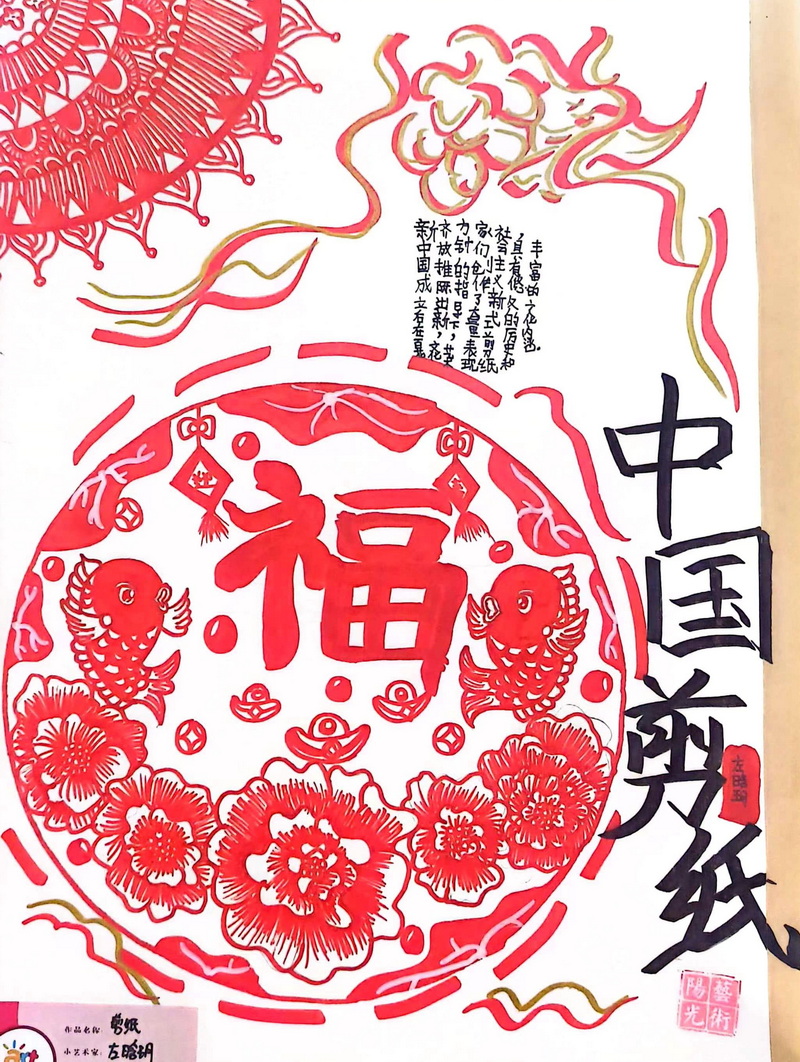 新中国成立后在百
齐放推陈出新，花
方针的指导下，艺术
家们创作了大量表现
社会主义新式剪纸
，具有悠久的历史和
丰富的文化内涵.
福
中国剪纸
左晗玥
藝術
陽光
作品名称：剪纸
小艺术家：左晗玥
art